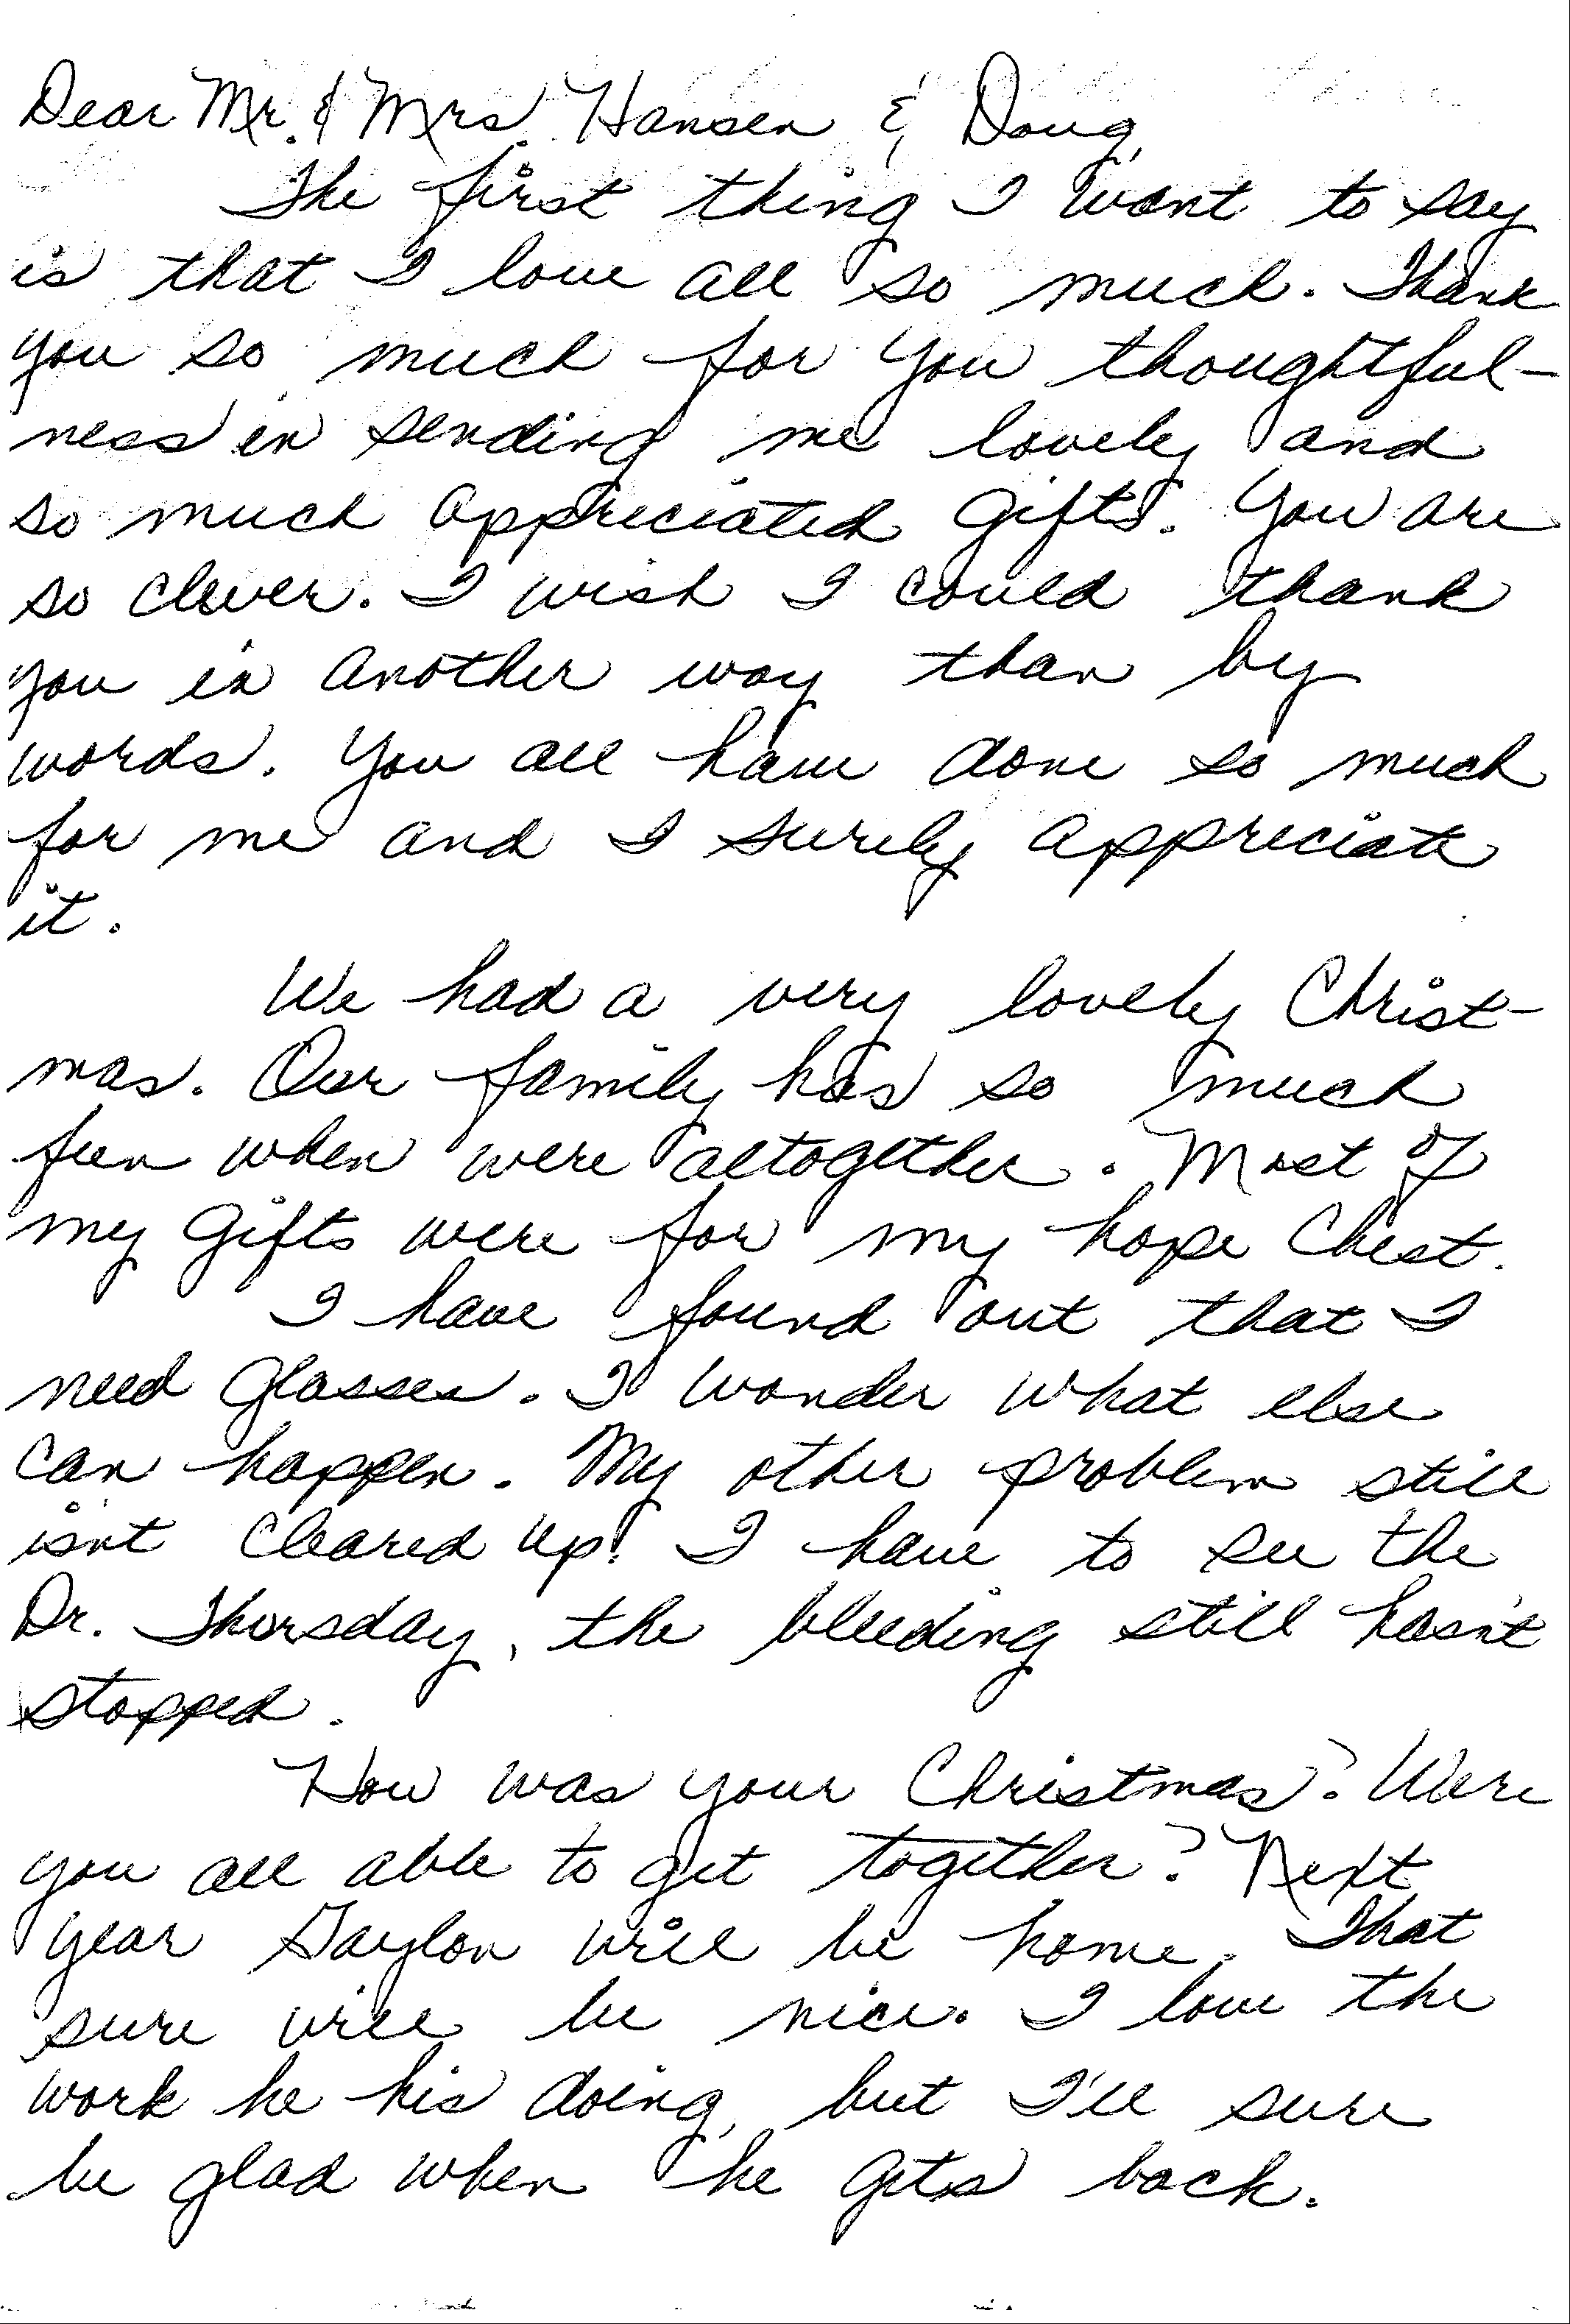 Dear Mr. & Mrs. Hansen & Doug,
The first thing I want to say
is that I love all so much. Thank
you so much for you thoughtful-
ness in sending me lovely and
so much appreciated gifts. You are
so clever. I wish I could thank
you in another way than by
words. You all have done so much
for me and I surely appreciate
it.
We had a very lovely Christ-
mas. Our family has so much
fun when were altogether. Most of
my gifts were for my hope chest.
I have found out that I
need glasses. I wonder what else
can happen. My other problem still
isnt cleared up! I have to see the
Dr. Thursday, the bleeding still hasn't
stopped.
How was your Christmas? Were
you all able to get together? Next
year Gaylon will be home. That
sure will be nice. I love the
work he his doing, but I'll sure
be glad when he gets back.